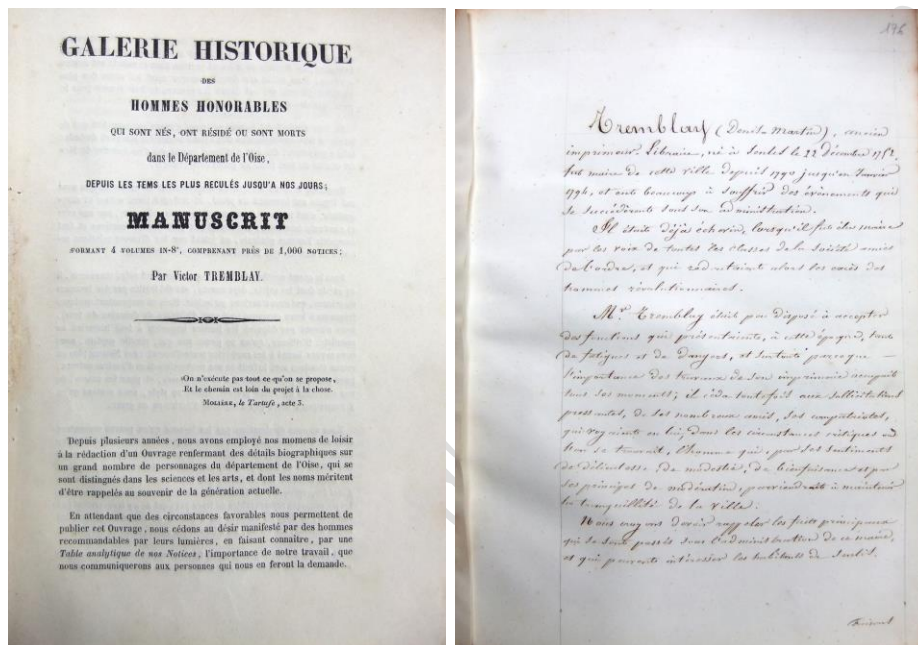 GALERIE HISTORIQUE
DES
HOMMES HONORABLES
QUI SONT NÉS, ONT RÉSIDÉ OU SONT MORTS
dans le Département de l'Oise,
DEPUIS LES TEMS LES PLUS RECULÉS JUSQU'A NOS JOURS;
MANUSCRIT
FORMANT 4 VOLUMES IN-8°, COMPRENANT PRÈS DE 1,000 NOTICES;
Par Victor TREMBLAY.
On n'exécute pas tout ce qu'on se propose,
Et le chemin est loin du projet à la chose.
MOLIÈRE, le Tartufe, acte 3.
Depuis plusieurs années, nous avons employé nos momens de loisir
à la rédaction d'un Ouvrage renfermant des détails biographiques sur
un grand nombre de personnages du département de l'Oise, qui se
sont distingués dans les sciences et les arts, et dont les noms méritent
d'être rappelés au souvenir de la génération actuelle.
En attendant que des circonstances favorables nous permettent de
publier cet Ouvrage, nous cédons au désir manifesté par des hommes
recommandables par leurs lumières, en faisant connaître, par une
Table analytique de nos Notices, l'importance de notre travail, que
nous communiquerons aux personnes qui nous en feront la demande.
Tremblay (Denis-Martin), ancien
imprimeur-Libraire, né à Senlis le 22 Décembre 1752,
fut maire de cette ville depuis 1790 jusqu'en Janvier
et eut beaucoup à souffrir des évènements qui
se succédèrent sous son administration.
Il était déjà échevin, lorsqu'il fut élu maire
par les voix de toutes les classes de la Société amies
de l'ordre, et qui redoutaient alors les excès des
hommes révolutionnaires.
Mr. Tremblay était peu disposé à accepter
des fonctions qui présentaient, à cette époque, tant
de fatigues et de dangers, et surtout parceque
l'importance des travaux de son imprimerie occupait
tous ses moments; il céda toutefois aux sollicitations
pressantes, de ses nombreux amis, ses compatriotes,
qui voyaient en lui, dans les circonstances critiques où
l'on se trouvait, l'homme qui, par ses sentiments
de délicatesse, de modestie, de bienfaisance et par
ses principes de modération, parviendrait à maintenir
la tranquillité de la ville.
Nous croyons devoir rappeler les faits principaux
qui se sont passés sous l'administration de ce maire,
et qui peuvent intéresser les habitants de Senlis.